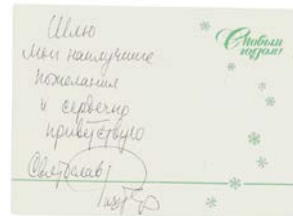 Шлю
Мои наилучшие
пожелания
и сердечно
приветствую
Святослав
С Новым
годом!